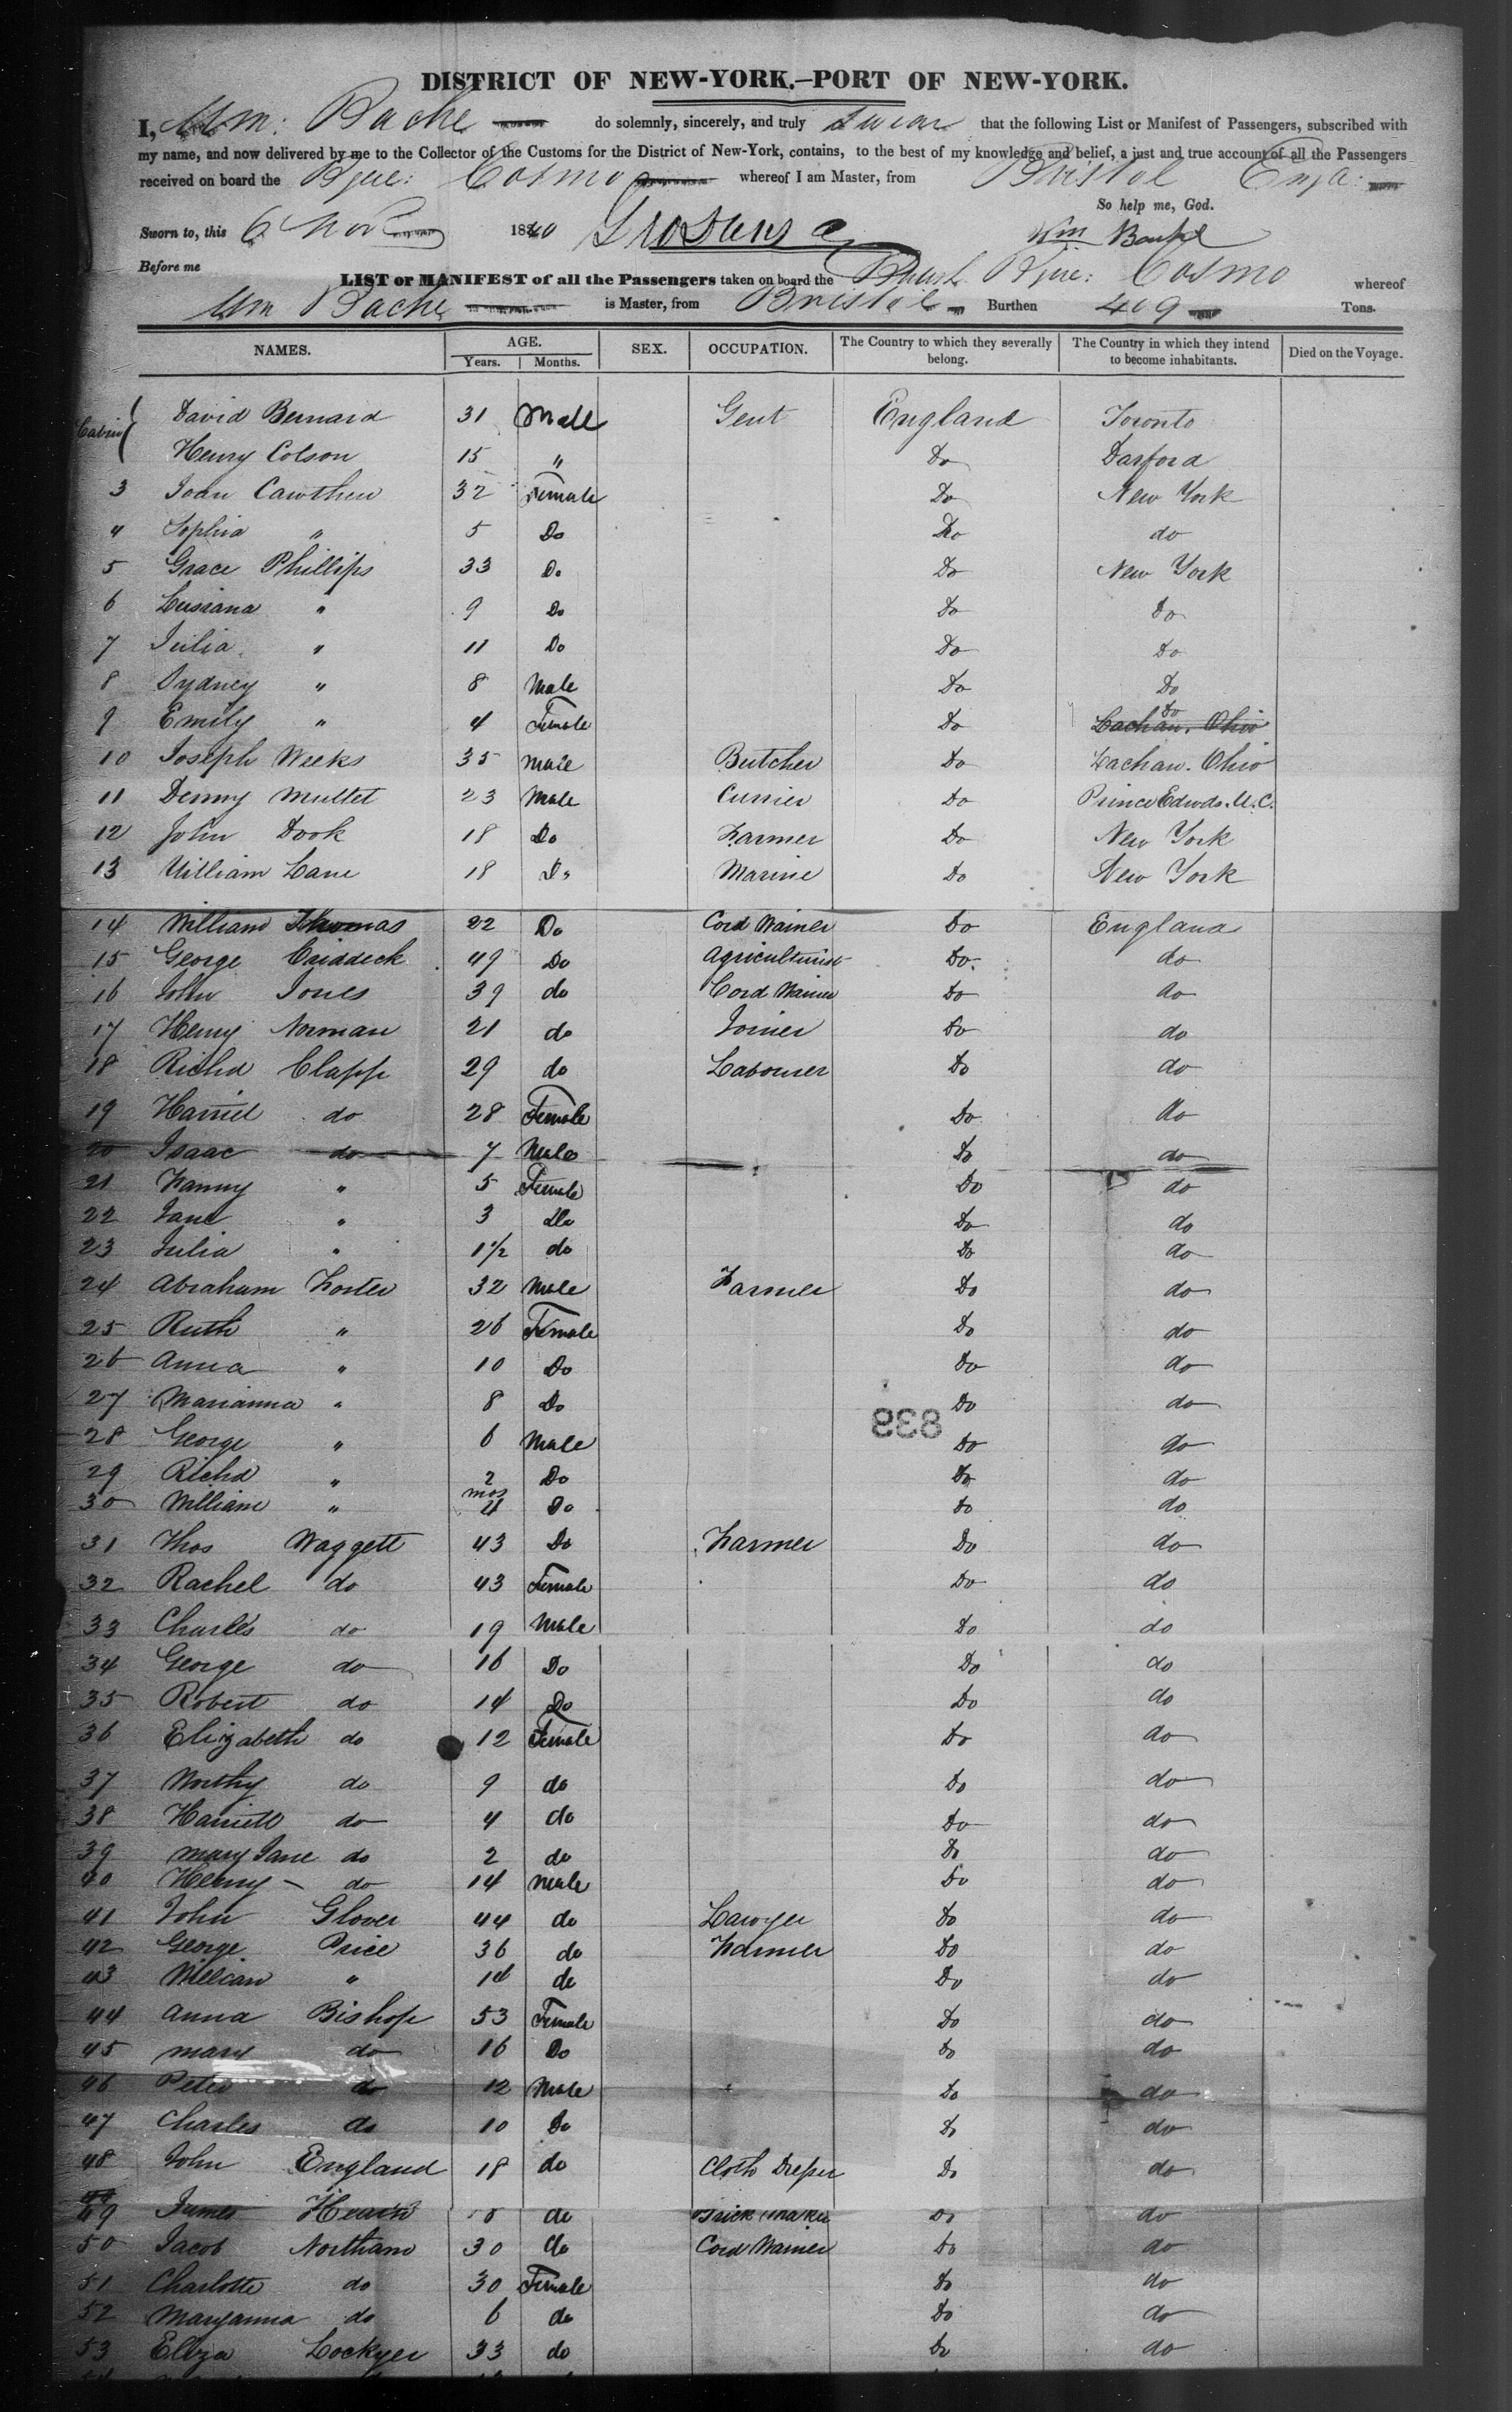 DISTRICT OF NEW-YORK.—PORT OF NEW-YORK.
I, Wm: Bache do solemnly, sincerely, and truly swear that the following List or Manifest of Passengers, subscribed with
my name, and now delivered by me to the Collector of the Customs for the District of New-York, contains, to the best of my knowledge and belief, a just and true account of all the Passengers
received on board the Bque: Cosmo whereof I am Master, from Bristol Enga:
So help me, God.
Sworn to, this 6 Nov 1840
Before me
LIST or MANIFEST of all the Passengers taken on board the British Bque: Cosmo whereof
Wm Bache is Master, from Bristol Burthen 409 Tons.
NAMES. AGE. Years. Months. SEX. OCCUPATION. The Country to which they severally belong. The Country in which they intend to become inhabitants. Died on the Voyage.
Cabin David Bernard 31 Male Gent England Toronto
Henry Colson 15 " Do Darford
3 Joan Cawthen 32 Female Do New York
4 Sophia " 5 Do Do do
5 Grace Phillips 33 Do Do New York
6 Lusiana " 9 Do Do Do
7 Julia " 11 Do Do Do
8 Sydney " 8 Male Do Do
9 Emily " 4 Female Do Do Zachan. Ohio
10 Joseph Weeks 35 Male Butcher Do Zachan. Ohio
11 Denny Mullet 23 Male Currier Do Prince Edwds. U.C.
12 John Dook 18 Do Farmer Do New York
13 William Lane 18 Do Marine Do New York
14 William Thomas 22 Do Cord Wainer Do England
15 George Criddeck 49 Do Agriculturist Do do
16 John Jones 39 do Cord Wainer Do do
17 Henry Norman 21 do Joiner Do do
18 Richd Clapp 29 do Labourer Do do
19 Harriet do 28 Female Do do
20 Isaac do 7 Male Do do
21 Fanny " 5 Female Do do
22 Jane " 3 Do Do do
23 Julia " 1½ do Do do
24 Abraham Foster 32 Male Farmer Do do
25 Ruth " 26 Female Do do
26 Anna " 10 Do Do do
27 Marianna " 8 Do Do do
838
28 George " 6 Male Do do
29 Richd " 2 Do Do do
30 William " mos 4 Do Do do
31 Thos Waggett 43 Do Farmer Do do
32 Rachel do 43 Female Do do
33 Charles do 19 Male Do do
34 George do 16 Do Do do
35 Robert do 14 Do Do do
36 Elizabeth do 12 Female Do do
37 Worthy do 9 do Do do
38 Harriett do 4 do Do do
39 Mary Jane do 2 do Do do
40 Henry do 14 Male Do do
41 John Glover 44 do Lawyer Do do
42 George Price 36 do Farmer Do do
43 William " 14 do Do do
44 Anna Bishop 53 Female Do do
45 Mary do 16 Do Do do
46 Peter do 12 Male Do do
47 Charles do 10 Do Do do
48 John England 18 do Cloth Dresser Do do
49 James Heath do Brick Maker Do do
50 Jacob Northam 30 do Cord Wainer Do do
51 Charlotte do 30 Female Do do
52 Maryanna do 6 do Do do
53 Eliza Lockyer 33 do Do do